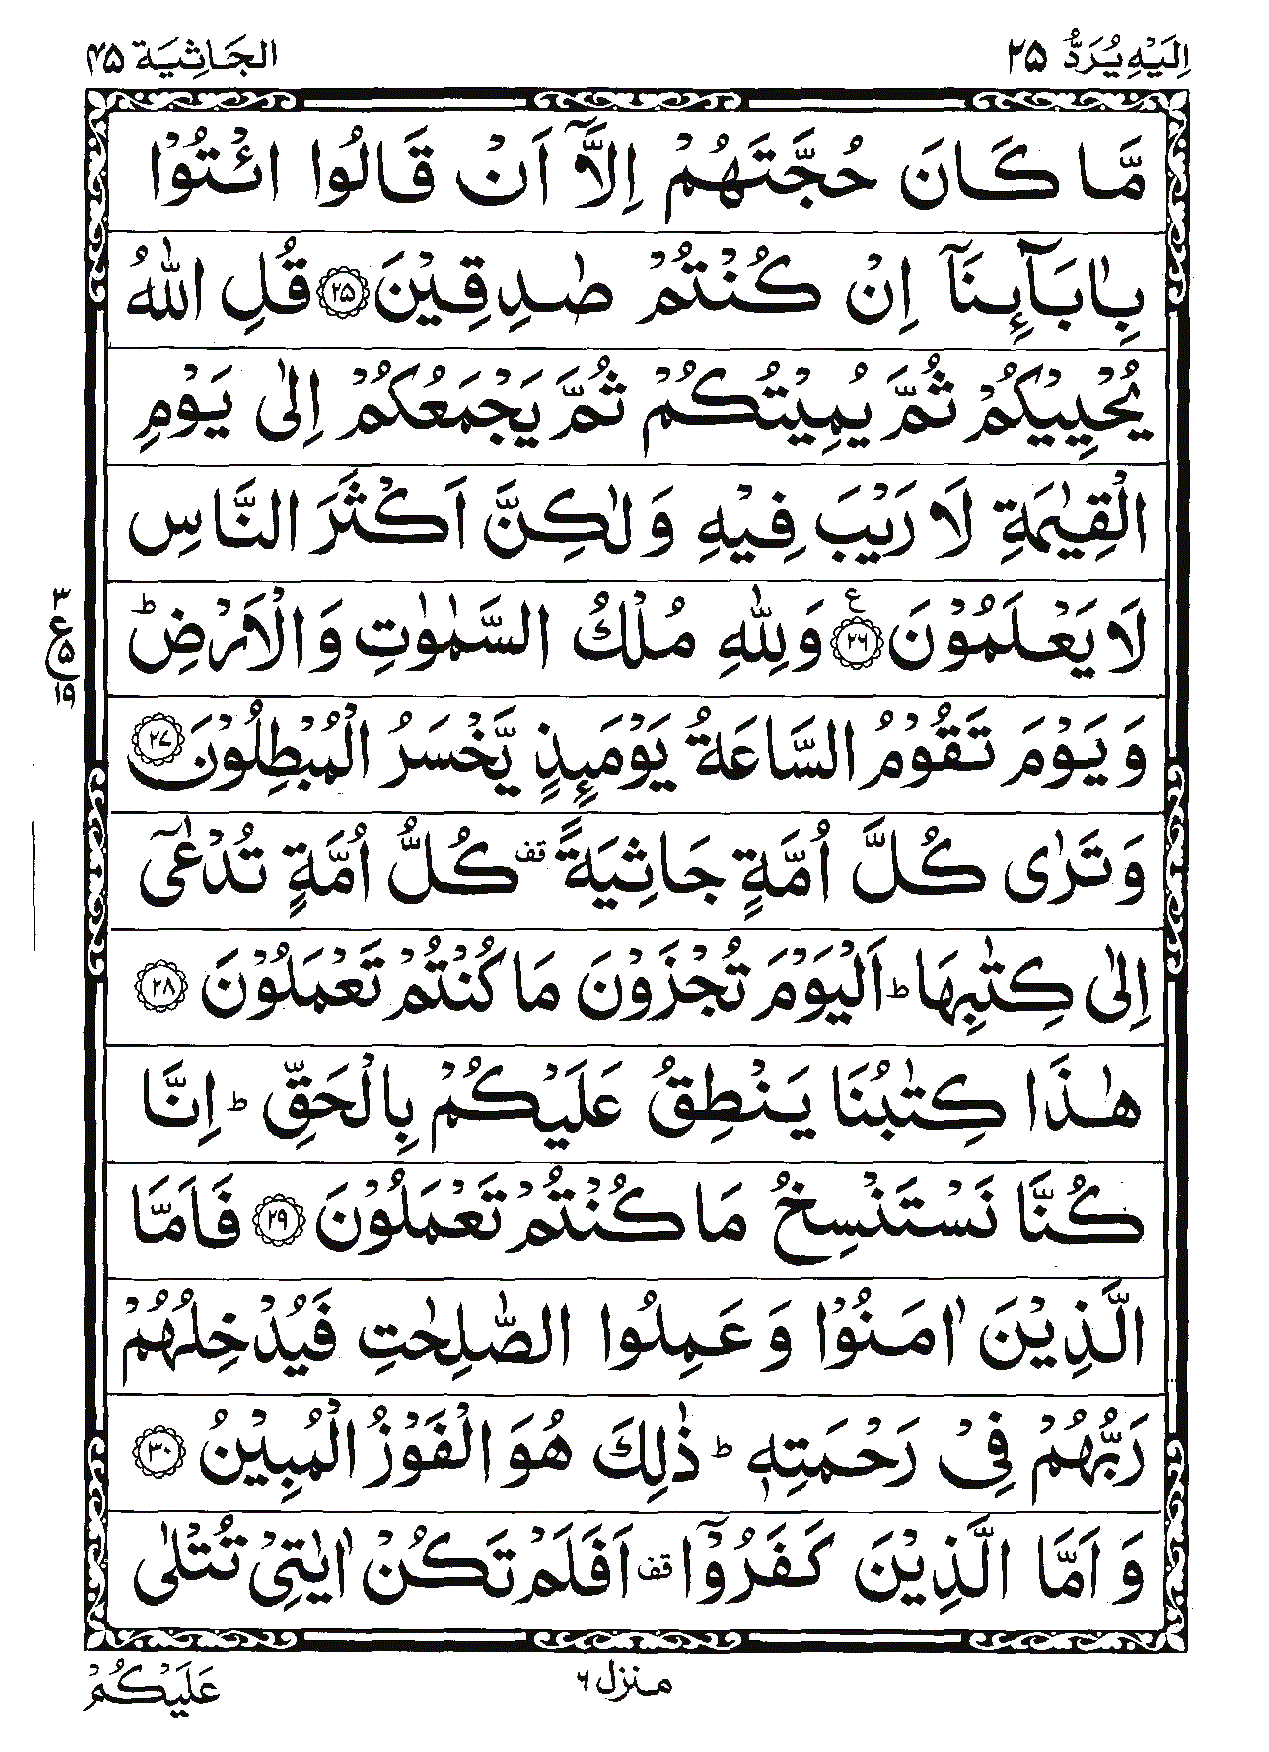 اِلَیْهِ یُرَدُّ ۲۵
الجَاثِیَة ۴۵
مَّا كَانَ حُجَّتَهُمْ اِلَّاۤ اَنْ قَالُوا ائْتُوْا
بِاٰبَآىِٕنَاۤ اِنْ كُنْتُمْ صٰدِقِیْنَ ۲۵ قُلِ اللّٰهُ
یُحْیِیْكُمْ ثُمَّ یُمِیْتُكُمْ ثُمَّ یَجْمَعُكُمْ اِلٰی یَوْمِ
الْقِیٰمَةِ لَا رَیْبَ فِیْهِ وَ لٰكِنَّ اَكْثَرَ النَّاسِ
لَا یَعْلَمُوْنَ ۲۶ ع وَلِلّٰهِ مُلْكُ السَّمٰوٰتِ وَالْاَرْضِ ؕ
۳ ع ۵ ۱۹
وَ یَوْمَ تَقُوْمُ السَّاعَةُ یَوْمَىِٕذٍ یَّخْسَرُ الْمُبْطِلُوْنَ ۲۷
وَتَرٰی كُلَّ اُمَّةٍ جَاثِیَةً قف كُلُّ اُمَّةٍ تُدْعٰۤی
اِلٰی كِتٰبِهَا ؕ اَلْیَوْمَ تُجْزَوْنَ مَا كُنْتُمْ تَعْمَلُوْنَ ۲۸
هٰذَا كِتٰبُنَا یَنْطِقُ عَلَیْكُمْ بِالْحَقِّ ؕ اِنَّا
كُنَّا نَسْتَنْسِخُ مَا كُنْتُمْ تَعْمَلُوْنَ ۲۹ فَاَمَّا
الَّذِیْنَ اٰمَنُوْا وَ عَمِلُوا الصّٰلِحٰتِ فَیُدْخِلُهُمْ
رَبُّهُمْ فِیْ رَحْمَتِهٖ ؕ ذٰلِكَ هُوَ الْفَوْزُ الْمُبِیْنُ ۳۰
وَ اَمَّا الَّذِیْنَ كَفَرُوْۤا قف اَفَلَمْ تَكُنْ اٰیٰتِیْ تُتْلٰی
منزل ۶
عَلَیْكُمْ